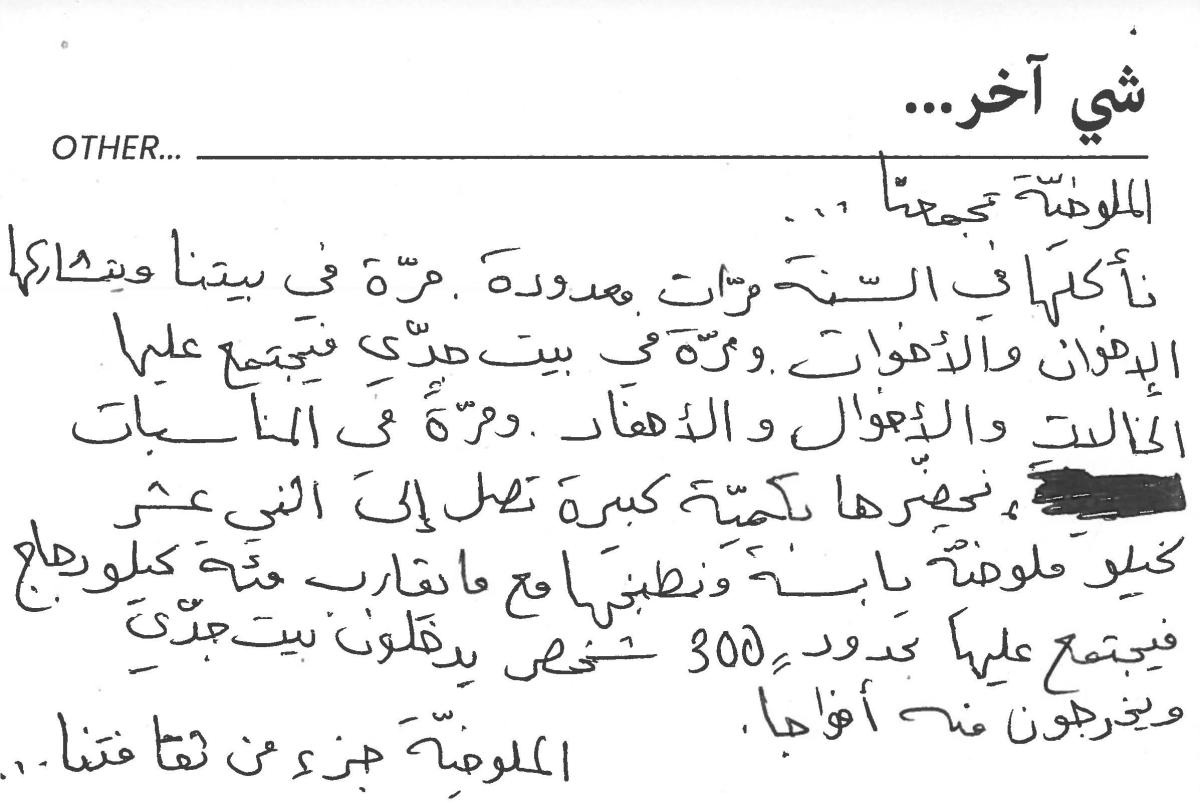 شي آخر...
OTHER...
الملوخيّة تجمعنا ...
نأكلها في السّنة مرّات معدودة. مرّة في بيتنا ويتشاركها
الإخوان والأخوات. ومرّة في بيت جدّي فيجتمع عليها
الخالات والأخوال والأحفاد. ومرّةً في المناسبات
، نحضّرها بكميّة كبيرة تصل إلى اثني عشر
كيلو ملوخيّة يابسة ونطبخها مع ما يقارب مئة كيلو دجاج
فيجتمع عليها بحدود 300 شخص يدخلون بيت جدّي
ويخرجون منه أفواجا.
الملوخيّة جزء من ثقافتنا...